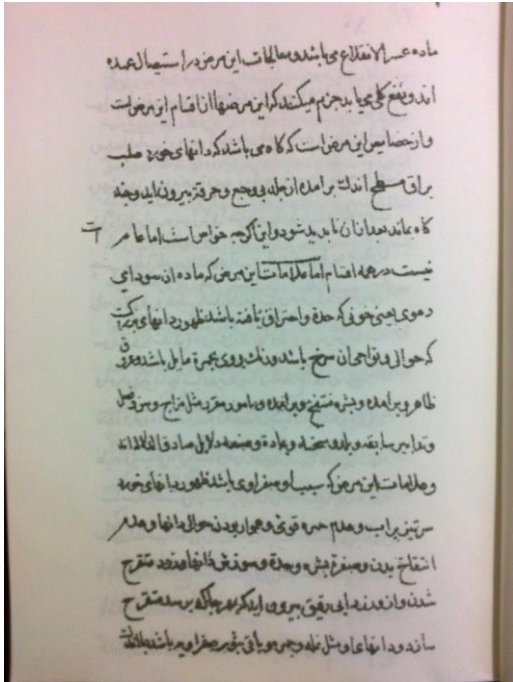 ماده عسر الانقلاع می باشد و معالجات این مرض در استیصال عمده
اند و نفع کلی می یابد جزم میکنند که این مرضها از اقسام این مرض است
و از خصایص این مرض است که گاه می باشد که دانهای خورد صلب
براق مسطح اندک برامده از جلد بی وجع و حرقة بیرون اید و چند
گاه بماند بعد ازان نابدید شود و این اگرچه خواص است اما عام
نیست در همه اقسام اما علامات این مرض که ماده ان سودای
دموی یعنی خونی که حدة و احتراق یافته باشد ظهور دانهای بزرگ است
که حوالی و نواحی ان سرخ باشد و رنک روی بحمرة مایل باشد و عروق
ظاهر و برامده و بشره منتفخ و برامده و بامور مقرره مثل مزاج و سن و فصل
و تدابیر سابقه و بلد و سحنه و عادة و صنعه دلایل صادقا الدلاله اند
و علامات این مرض که سبب او صفراوی باشد ظهور دانهای خورد
سرتیز پر اب و عدم حمره قوی و هموار بودن حوالی دانها و عدم
انتفاخ بدن و صفرة بشره وحدة و سوزش دانها و زود متقرح
شدن و از وزردابی رقیق بیرون اید که بهر جا که برسد متقرح
سازد و دانهای او مثل نمله و جمره و باقی بثور صفراویه باشد بلا